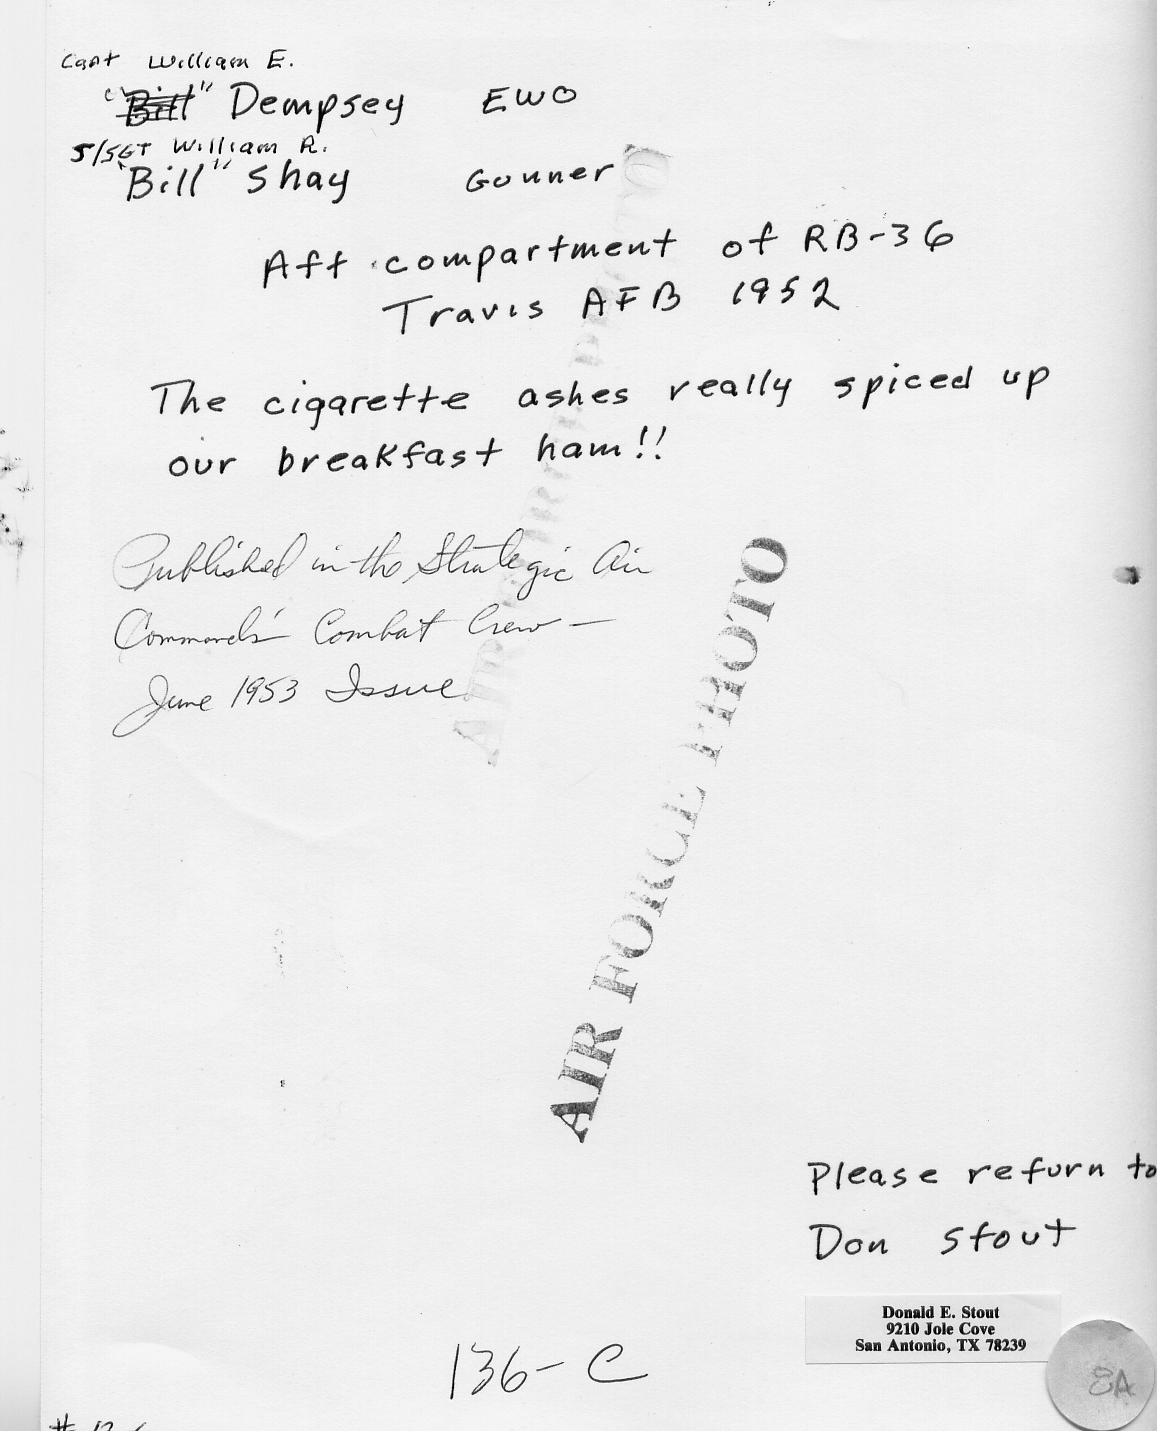 Capt William E.
"Bill" Dempsey EWO
S/SGT William R.
"Bill" Shay Gunner
Aft compartment of RB-36
Travis AFB 1952
The cigarette ashes really spiced up
our breakfast ham!!
Published in the Strategic Air
Command's Combat Crew —
June 1953 Issue
AIR FORCE PHOTO
AIR FORCE PHOTO
Please return to
Don Stout
Donald E. Stout
9210 Jole Cove
San Antonio, TX 78239
136-C
8A